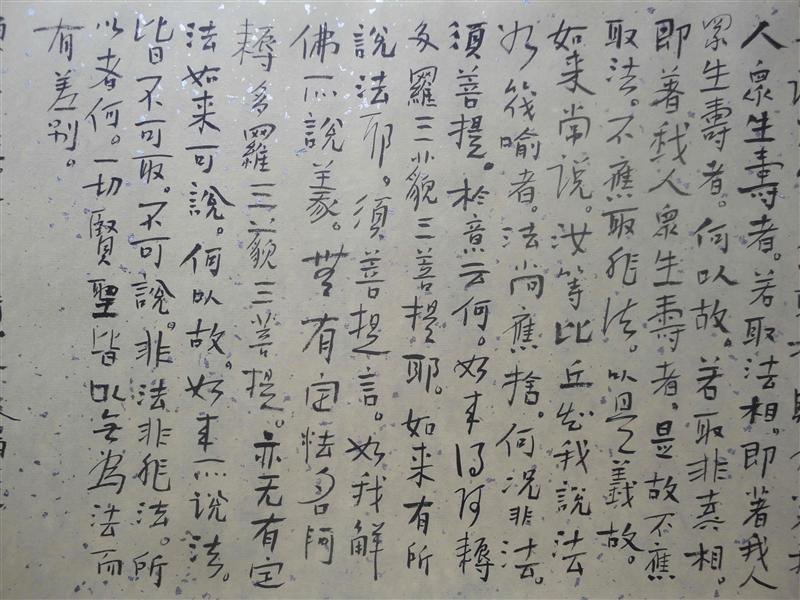 人衆生壽者。若取法相。即著我人
衆生壽者。何以故。若取非真相。
即著我人衆生壽者，是故不應
取法。不應取非法。以是之義故。
如来常説。汝等比丘知我說法
如筏喻者。法尚應捨。何況非法。
須菩提。於意云何。如来得阿耨
多羅三藐三菩提耶。如来有所
說法耶。須菩提言。如我解
佛所說義。無有定法名阿
耨多羅三藐三菩提。亦无有定
法如来可說。何以故。如来所說法。
皆不可取。不可說。非法非非法。所
以者何。一切賢聖皆以无為法而
有差别。